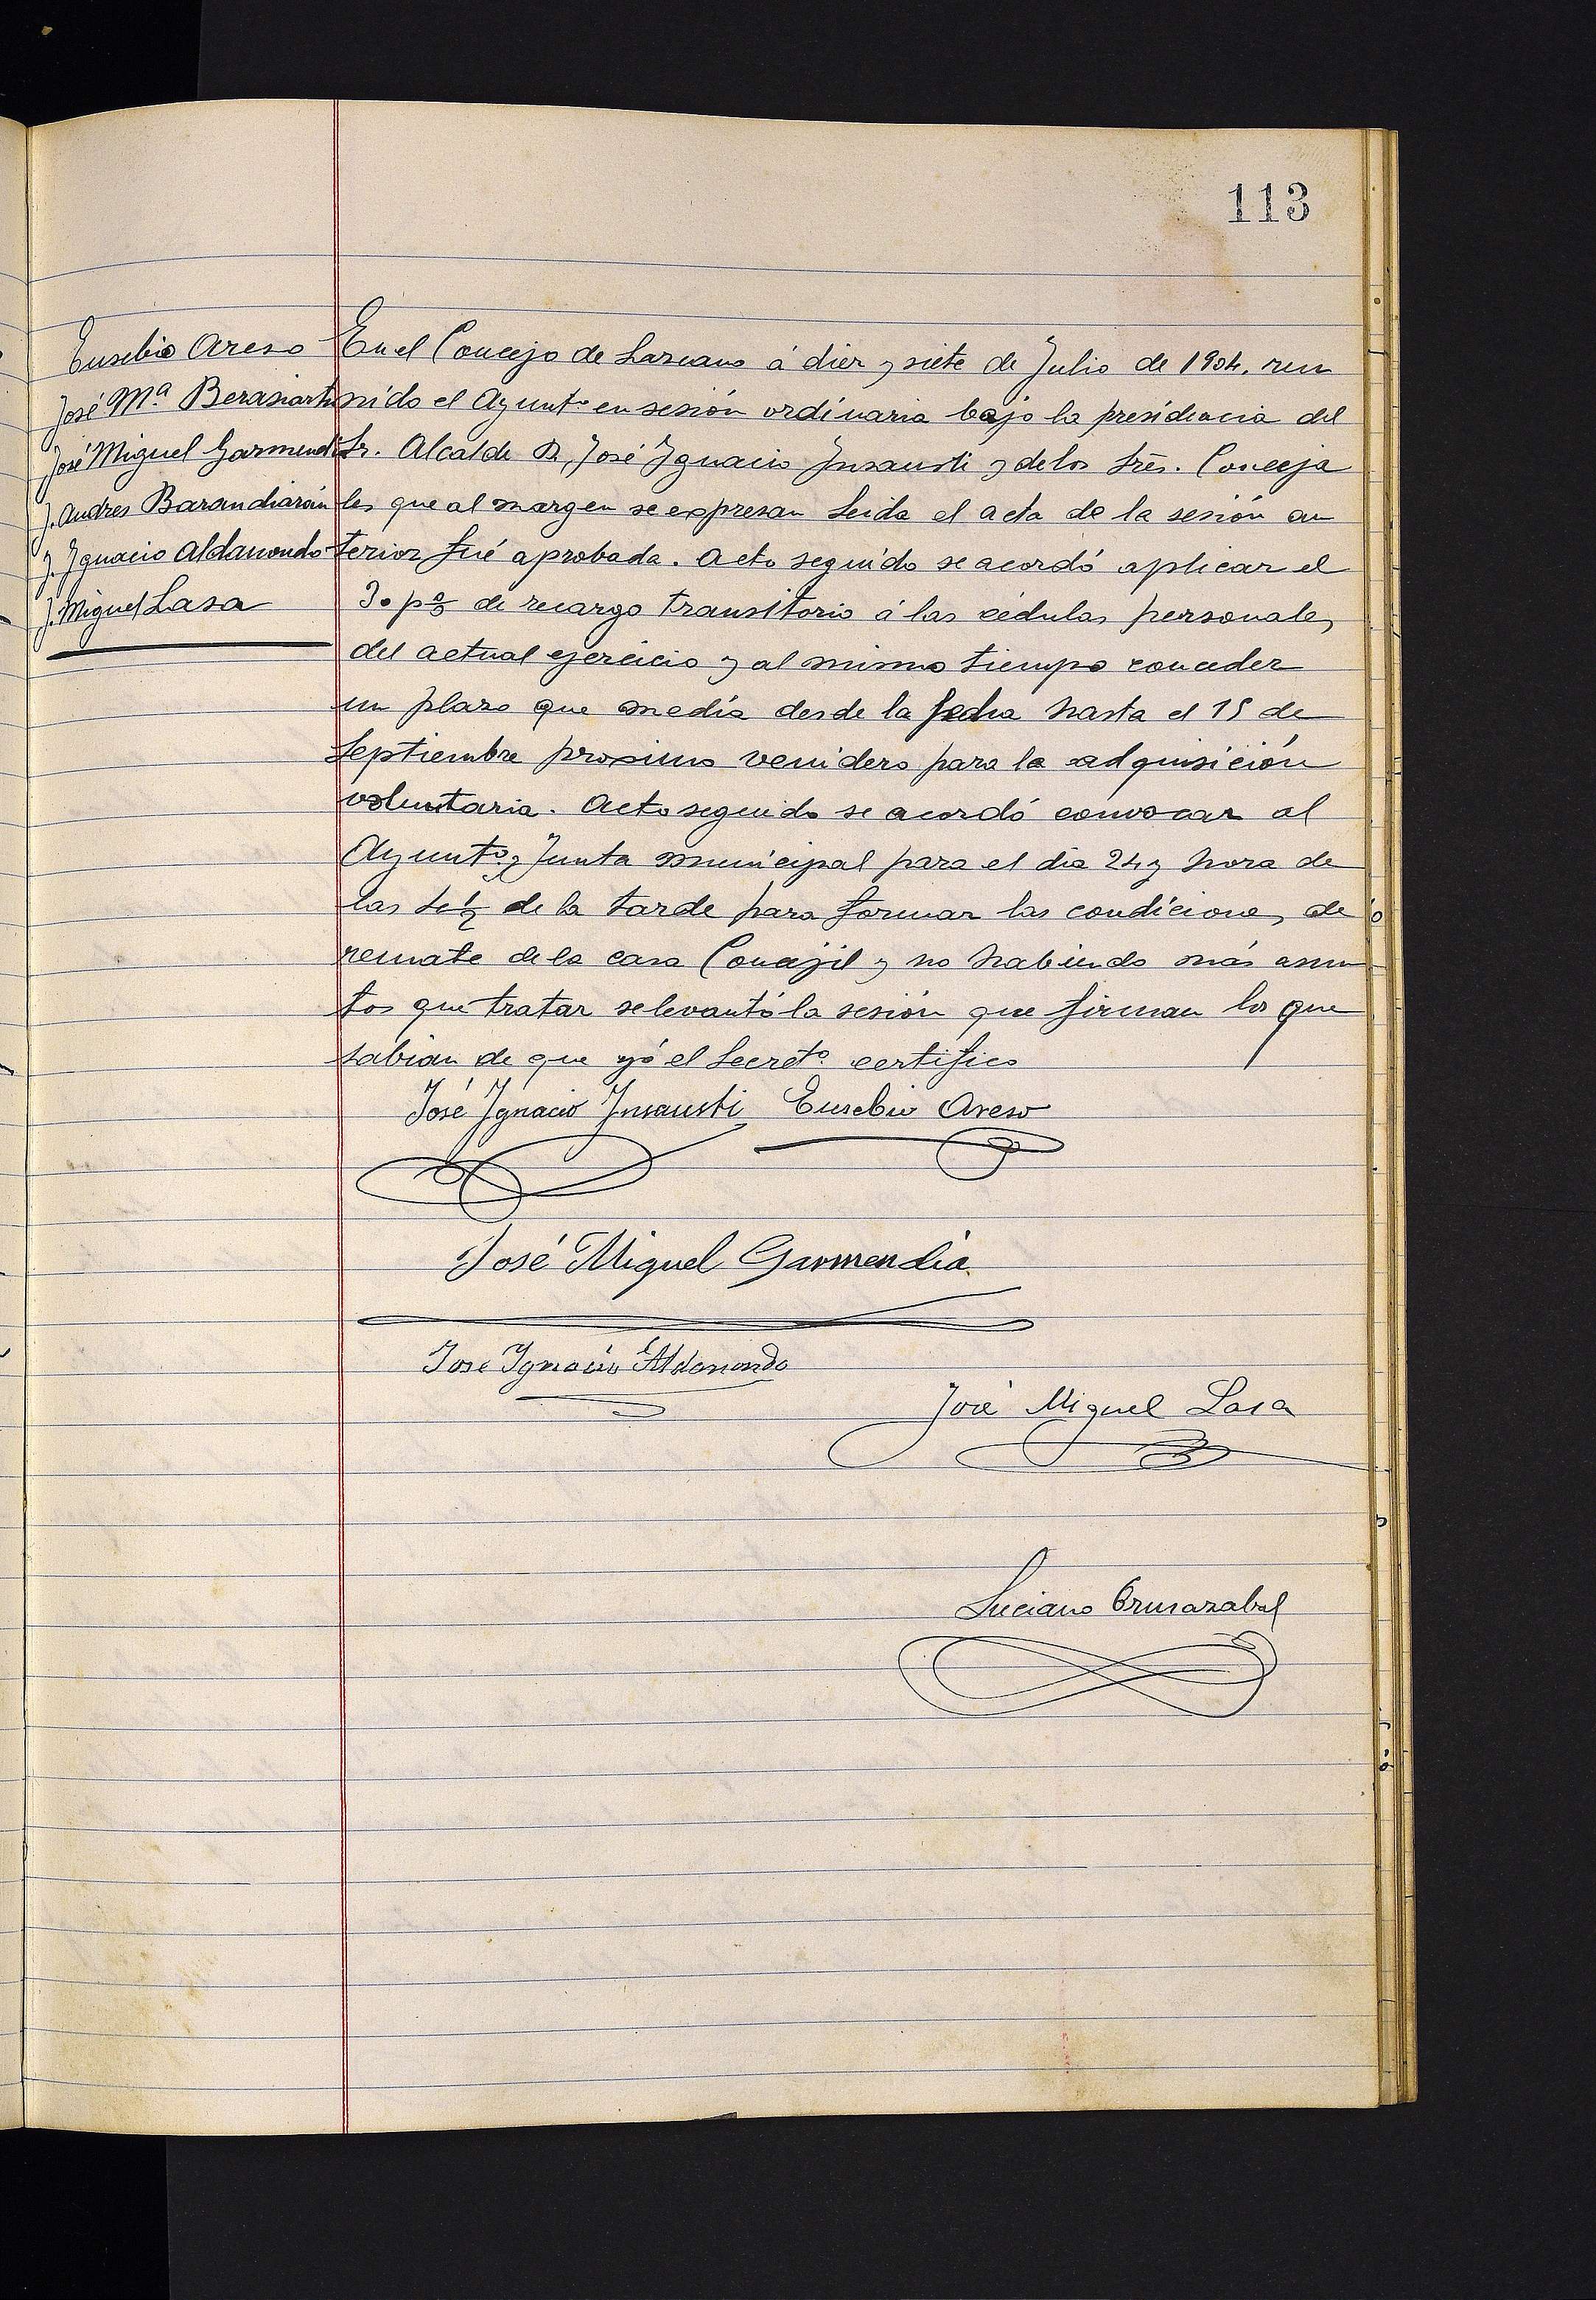 113
Eusebio Areso
José Mª Berasiartu
José Miguel Garmendi
J. Andres Barandiarán
J. Ignacio Aldanondo
J. Miguel Lasa
En el Concejo de Lazcano á diez y siete de Julio de 1904, reu
nido el Ayuntº en sesión ordinaria bajo la presidencia del
Sr. Alcalde D. José Ignacio Insausti y de los Srēs. Conceja
les que al margen se expresan Leida el acta de la sesión an
terior fué aprobada. Acto seguido se acordó aplicar el
30 p% de recargo transitorio á las cédulas personales
del actual ejercicio y al mismo tiempo conceder
un plazo que media desde la fecha hasta el 15 de
Septiembre proximo venidero para la adquisición
voluntaria. Acto seguido se acordó convocar al
Ayuntº y Junta municipal para el dia 24 y hora de
las de la tarde para formar las condiciones de
remate de la casa Concejil y no habiendo más asun
tos que tratar se levantó la sesión que firman los que
sabian de que yó el Secretº certifico
José Ignacio Insausti Eusebio Areso
José Miguel Garmendia
José Ignacio Aldanondo
José Miguel Lasa
Luciano